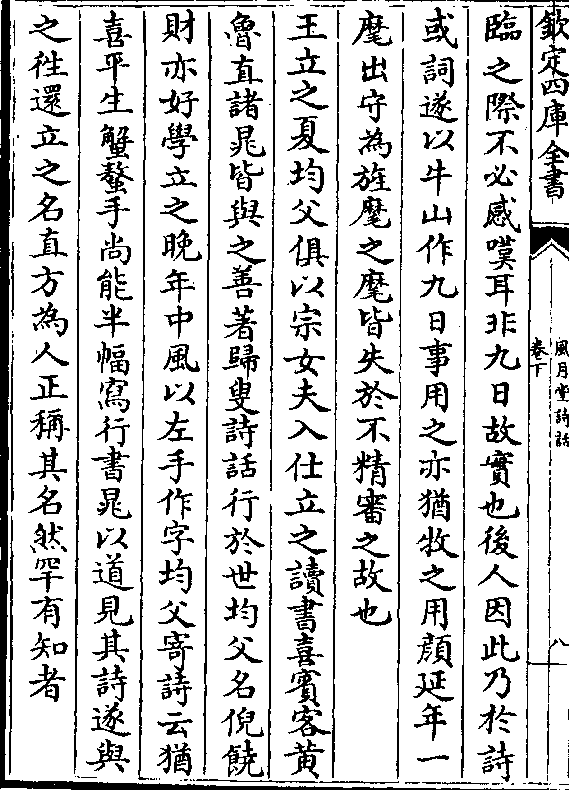 欽定四庫全書
風月堂詩話
卷下
八
臨之際不必感嘆耳非九日故實也後人因此乃於詩
或詞遂以牛山作九日事用之亦猶牧之用顔延年一
麾出守為旌麾之麾皆失於不精審之故也
王立之夏均父俱以宗女夫入仕立之讀書喜賓客黄
魯直諸晁皆與之善著歸叟詩話行於世均父名倪饒
財亦好學立之晚年中風以左手作字均父寄詩云猶
喜平生蟹螯手尚能半幅寫行書晁以道見其詩遂與
之往還立之名直方為人正稱其名然罕有知者